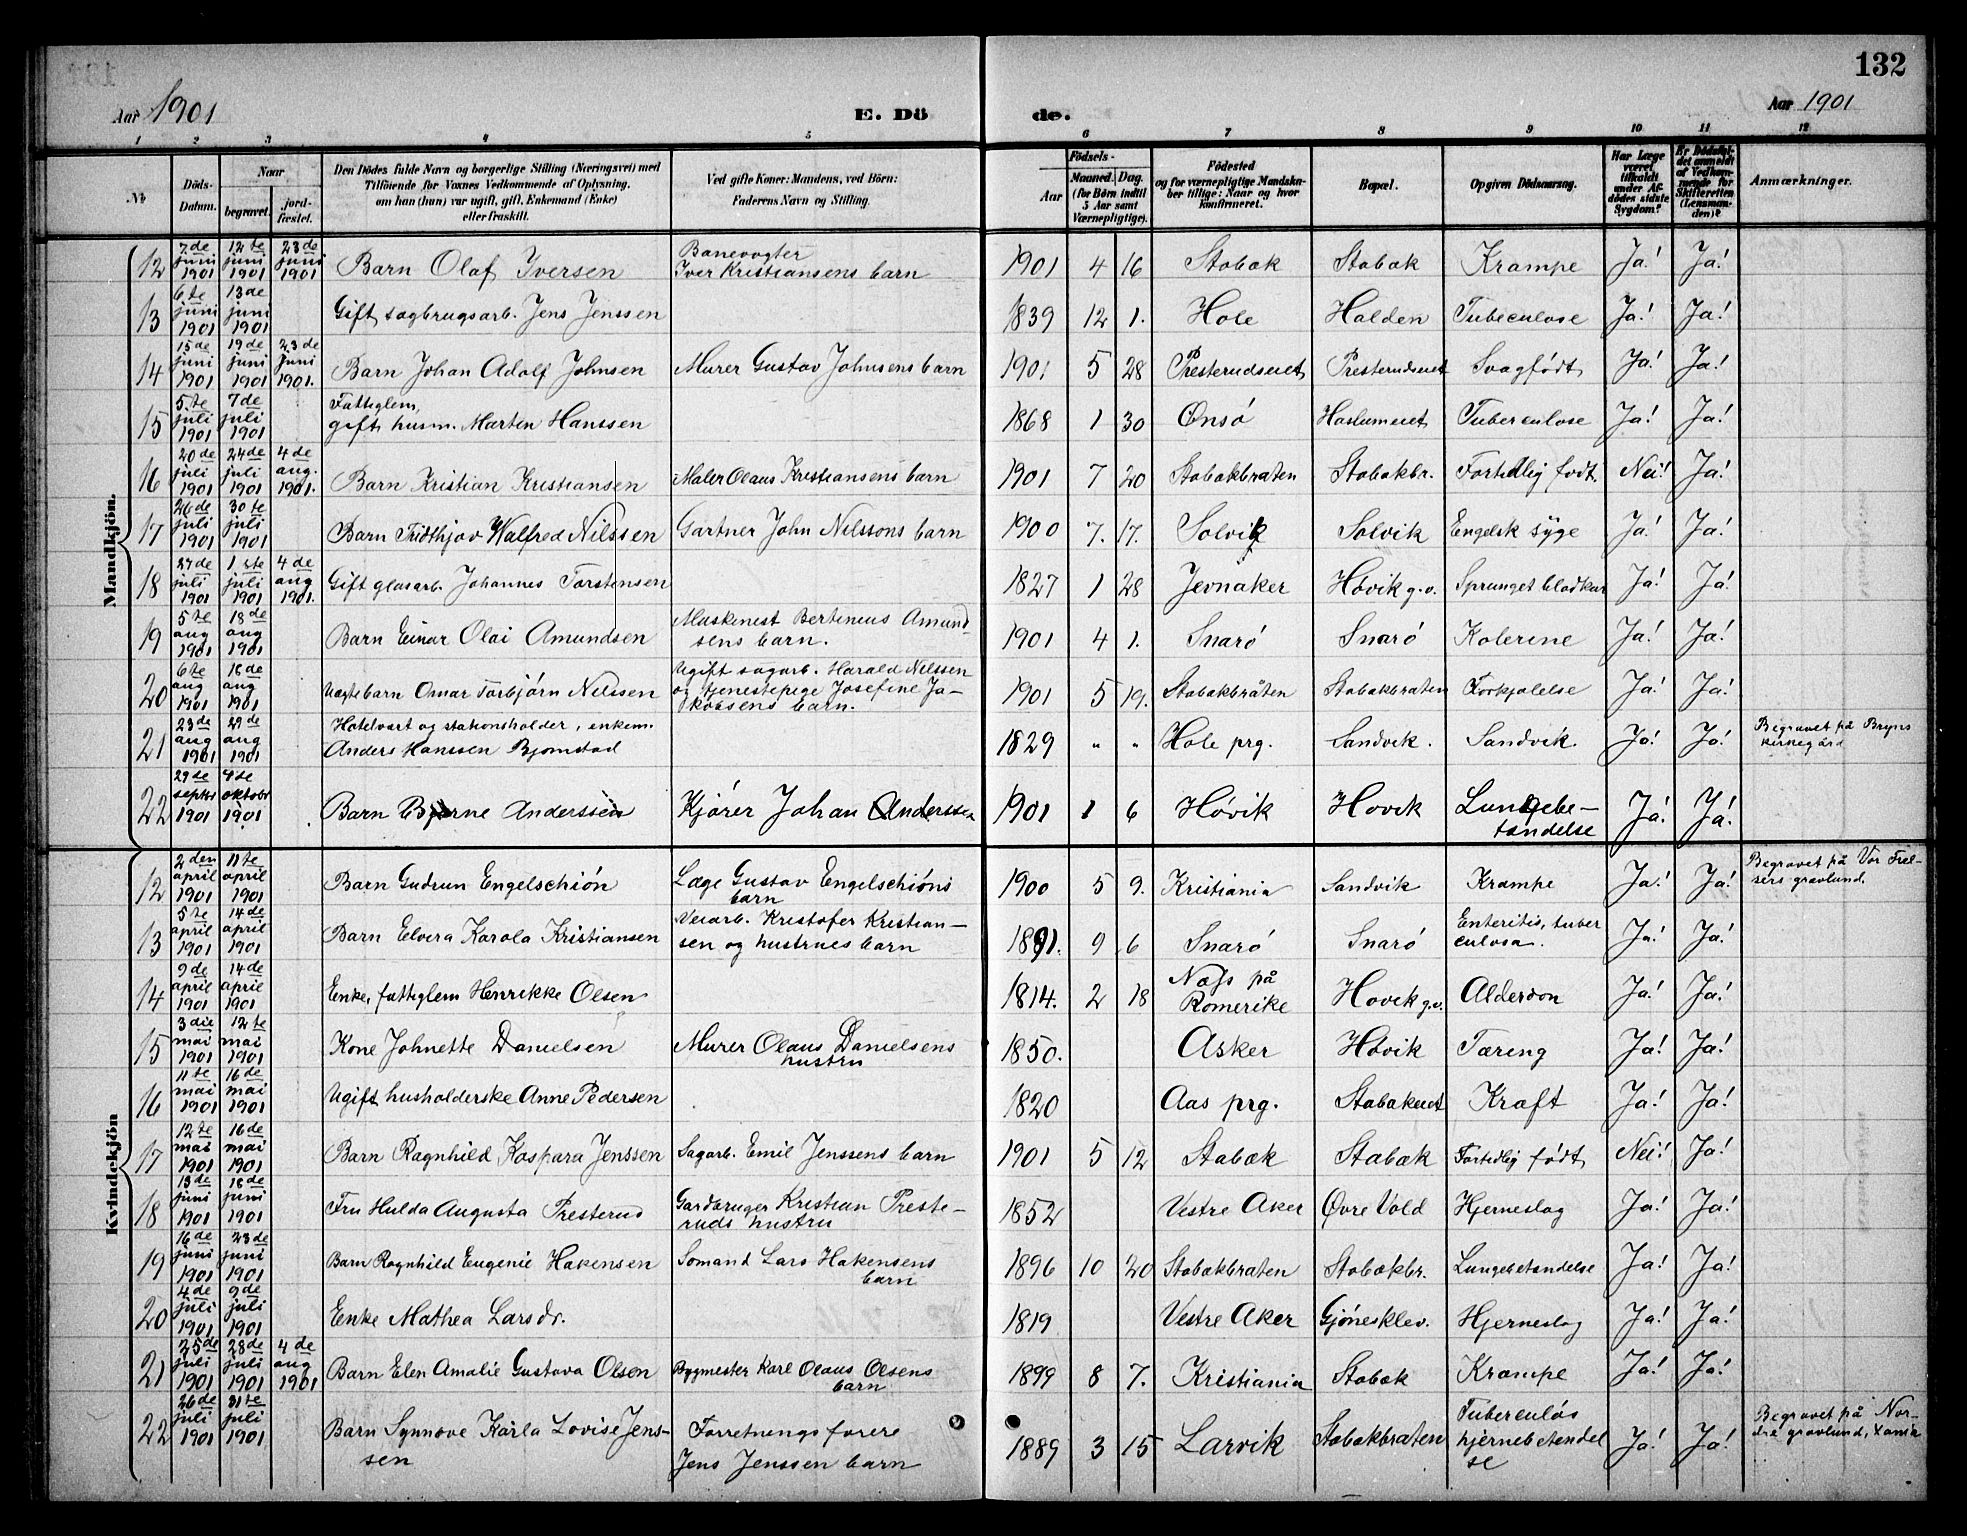 132
Aar 1901 E. Dö de. Aar 1901
1 2 3 4 5 6 7 8 9 10 11 12
№
Döds-Datum.
Naar
begravet.
jord-fæstet.
Den Dödes fulde Navn og borgerlige Stilling (Næringsvei) med
Tilföiende for Voxnes Vedkommende af Oplysning,
om han (hun) var ugift, gift, Enkemand (Enke)
eller fraskilt.
Ved gifte Koner: Mandens, ved Börn:
Faderens Navn og Stilling.
Födsels-
Aar
Maaned. Dag.
(for Börn indtil
5 Aar samt
Værnepligtige).
Födested
og for værnepligtige Mandska-
ber tillige: Naar og hvor
konfirmeret.
Bopæl.
Opgiven Dödsaarsag.
Har Læge
været
tilkaldt
under Af-
dödes sidste
Sygdom?
Er Dödsfal-
det anmeldt
af Vedkom-
mende for
Skifteretten
(Lensman-
den)?
Anmærkninger.
Mandkjön.
12 7de juni 1901 12te juni 1901 23de juni 1901 Barn Olaf Iversen Banevogter Iver Kristiansens barn 1901 4 16 Stabæk Stabæk Krampe Ja! Ja!
13 6te juni 1901 13de juni 1901 Gift sagbrugsarb. Jens Jenssen 1839 12 1. Hole Halden Tubeculose Ja! Ja!
14 15de juni 1901 19de juni 1901 23de juni 1901. Barn Johan Adolf Johnsen Murer Gustav Johnsens barn 1901 5 28 Presterudseiet Presterudseiet Svagfödt Ja! Ja!
15 5te juli 1901 7de juli 1901 Fattiglem, gift husm. Marten Hanssen 1868 1 30 Onsö Haslumeiet Tuberculose Ja! Ja!
16 20de juli 1901 24de juli 1901 4de aug. 1901. Barn Kristian Kristiansen Maler Olaus Kristiansens barn 1901 7 20 Stabækbraten Stabækbr. Fortidlig født. Nei! Ja!
17 26de juli 1901 30te juli 1901 Barn Fridthjov Walfred Nilssen Gartner John Nilssons barn 1900 7. 17. Solvik Solvik Engelsk syge Ja! Ja!
18 27de juli 1901 1ste juli 1901 4de aug 1901. Gift glasarb. Johannes Torstensen 1827 1 28 Jevnaker Høvik g.v. Sprunget blodkar Ja! Ja!
19 5te aug 1901 18de aug 1901 Barn Einar Olai Amundsen Maskenist Bertinius Amundsens barn. 1901 4 1. Snarö Snarö Kolerine Ja! Ja!
20 6te aug 1901 18de aug 1901 Uægte barn Omar Torbjörn Nilssen Ugift sagarb. Harald Nilssen og tjenestepige Josefine Jakobsens barn. 1901 5 19. Stabækbråten Stabækbraten Forkjølelse Ja! Ja!
21 23de aug 1901 29de aug 1901 Hotelvært og stationsholder, enkem. Anders Hanssen Bjornstad 1829 " " Hole prg. Sandvik. Sandvik. Ja! Ja! Begravet på Bryns kirkegård
22 29te septbr 1901 4te oktobr 1901 Barn Bjarne Anderssen Kjører Johan Anderssen 1901 1 6 Høvik Høvik Lungebe-tændelse Ja! Ja!
Kvindekjön
12 2den april 1901 11te april 1901 Barn Gudrun Engelschiön Læge Gustav Engelschiöns barn 1900 5 9. Kristiania Sandvik Krampe Ja! Ja! Begravet på Vor Frel-sers gravlund.
13 5te april 1901 14de april 1901 Barn Elvera Karola Kristiansen Veiarb. Kristofer Kristian-sen og hustrues barn 1891. 9 6 Snarö Snarö Enteritis, tuber culosa. Ja! Ja!
14 9de april 1901 14de april 1901 Enke, fattiglem Henrikke Olsen 1814. 2 18 Næs på Romerike Høvik g.v. Alderdon Ja! Ja!
15 3die mai 1901 12te mai 1901 Kone Johnette Danielsen Murer Olaus Danielsens hustru 1850. Asker Høvik Tæring Ja! Ja!
16 11te mai 1901 16de mai 1901 Ugift husholderske Anne Pedersen 1820 Aas prg. Stabækeiet Kræft Ja! Ja!
17 12te mai 1901 16de mai 1901 Barn Ragnhild Kaspara Jenssen Sagarb. Emil Jenssens barn 1901 5 12 Stabæk Stabæk Fortidlig født Nei! Ja!
18 13de juni 1901 18de juni 1901 Fru Hulda Augusta Presterud Gardbruger Kristian Preste-ruds hustru 1852 Vestre Aker Øvre Vold Hjerneslag Ja! Ja!
19 16de juni 1901 23de juni 1901 Barn Ragnhild Eugenie Hakensen Somand Lars Hakensens barn 1896 10 20 Stabækbraten Stabækbr. Lungebetændelse Ja! Ja!
20 4de juli 1901 9de juli 1901 Enke Mathea Larsdr. 1819 Vestre Aker Gjønesklev. Hjerneslag Ja! Ja!
21 25de juli 1901 28de juli 1901 4de aug 1901 Barn Elen Amalie Gustava Olsen Bygmester Karl Olaus Olsens barn 1899 8 7. Kristiania Stabæk Krampe Ja! Ja!
22 26de juli 1901 31te juli 1901 Barn Synnøve Karla Lovise Jens-sen Forretningsfører Jens Jenssen barn 1889 3 15 Larvik Stabækbraten Tuberculøs hjernebetændel se Ja! Ja! Begravet på Nor-dre gravlund, Xania